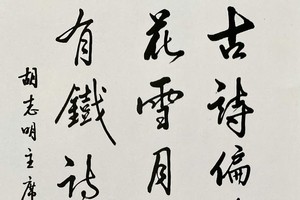 古詩偏
花雪月
有鐵詩
胡志明主席